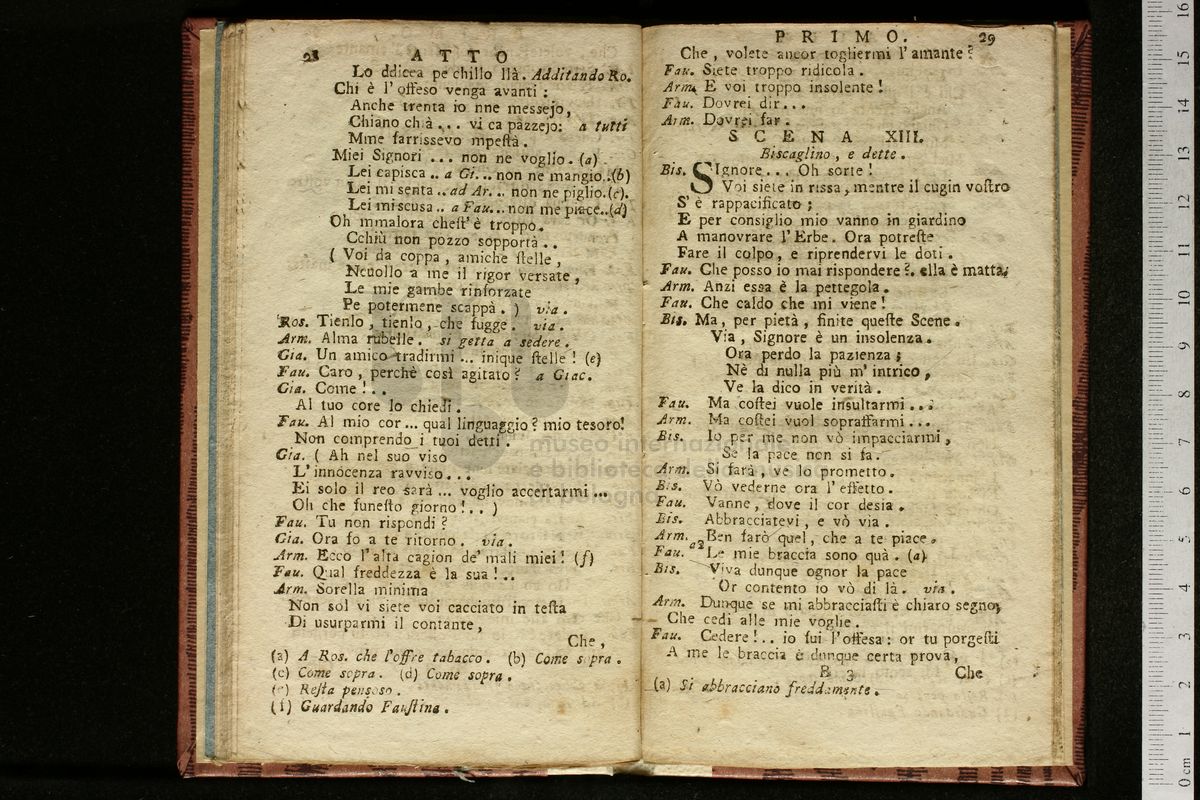 28 ATTO
Lo ddicea pe chillo llà. Additando Ro.
Chi è l'offeso venga avanti:
Anche trenta io nne messejo,
Chiano chià... vi ca pàzzejo: a tutti
Mme farrissevo mpeſtà.
Miei Signori ... non ne voglio. (a)
Lei capisca .. a Gi... non ne mangio..(b)
Lei mi senta .. ad Ar... non ne piglio.(c).
Lei mi scusa .. a Fau... non me piace..(d)
Oh mmalora cheſt'è troppo.
Cchiù non pozzo sopportà ..
( Voi da coppa, amiche ſtelle,
Ncuollo a me il rigor versate,
Le mie gambe rinforzate
Pe potermene scappà. ) via.
Ros. Tienlo, tienlo, che fugge. via.
Arm. Alma rubelle. si getta a sedere.
Gia. Un amico tradirmi ... inique ſtelle! (e)
Fau. Caro, perchè così agitato? a Giac.
Gia. Come!..
Al tuo core lo chiedi.
Fau. Al mio cor ... qual linguaggio? mio tesoro!
Non comprendo i tuoi detti.
Gia. ( Ah nel suo viso
L'innocenza ravviso...
Ei solo il reo sarà ... voglio accertarmi ...
Oh che funeſto giorno!.. )
Fau. Tu non rispondi?
Gia. Ora fo a te ritorno. via.
Arm. Ecco l'alta cagion de' mali miei! (f)
Fau. Qual freddezza è la sua!..
Arm. Sorella minima
Non sol vi siete voi cacciato in teſta
Di usurparmi il contante,
Che,
(a) A Ros. che l'offre tabacco. (b) Come sopra.
(c) Come sopra. (d) Come sopra.
(e) Reſta pensoso.
(f) Guardando Fauſtina.
PRIMO. 29
Che, volete ancor togliermi l'amante?
Fau. Siete troppo ridicola.
Arm. E voi troppo insolente!
Fau. Dovrei dir...
Arm. Dovrei far.
SCENA XIII.
Biscaglino, e dette.
Bis. SIgnore... Oh sorte!
Voi siete in rissa, mentre il cugin voſtro
S'è rappacificato;
E per consiglio mio vanno in giardino
A manovrare l'Erbe. Ora potreſte
Fare il colpo, e riprendervi le doti.
Fau. Che posso io mai rispondere?. ella è matta;
Arm. Anzi essa è la pettegola.
Fau. Che caldo che mi viene!
Bis. Ma, per pietà, finite queſte Scene.
Via, Signore è un insolenza.
Ora perdo la pazienza;
Nè di nulla più m'intrico,
Ve la dico in verità.
Fau. Ma coſtei vuole insultarmi...
Arm. Ma coſtei vuol sopraffarmi...
Bis. Io per me non vò impacciarmi,
Se la pace non si fa.
Arm. Si farà, ve lo prometto.
Bis. Vò vederne ora l'effetto.
Fau. Vanne, dove il cor desia.
Bis. Abbracciatevi, e vò via.
Arm. Ben farò quel, che a te piace.
Fau. a2 Le mie braccia sono quà. (a)
Bis. Viva dunque ognor la pace
Or contento io vò di là. via.
Arm. Dunque se mi abbracciaſti è chiaro segno,
Che cedi alle mie voglie.
Fau. Cedere!.. io fui l'offesa: or tu porgeſti
A me le braccia è dunque certa prova,
B 3 Che
(a) Si abbracciano freddamente.
museo internazionale
e biblioteca della musica
di bologna
0 cm 1 2 3 4 5 6 7 8 9 10 11 12 13 14 15 16